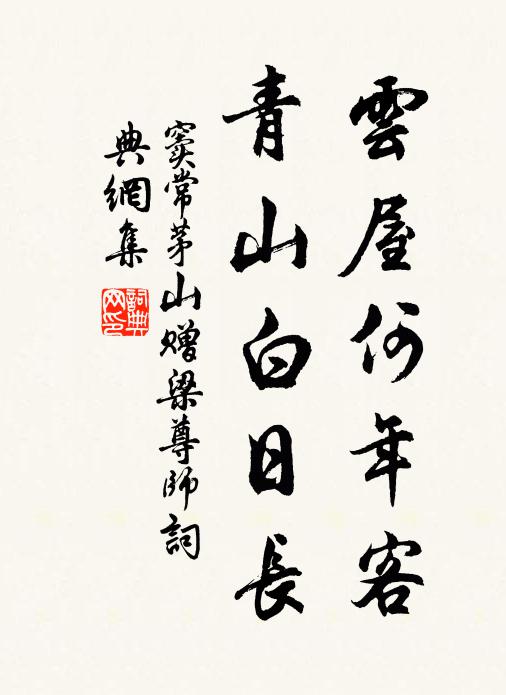 雲屋何年客
青山白日長
竇常茅山贈梁尊師詞
典網集
詞典網印